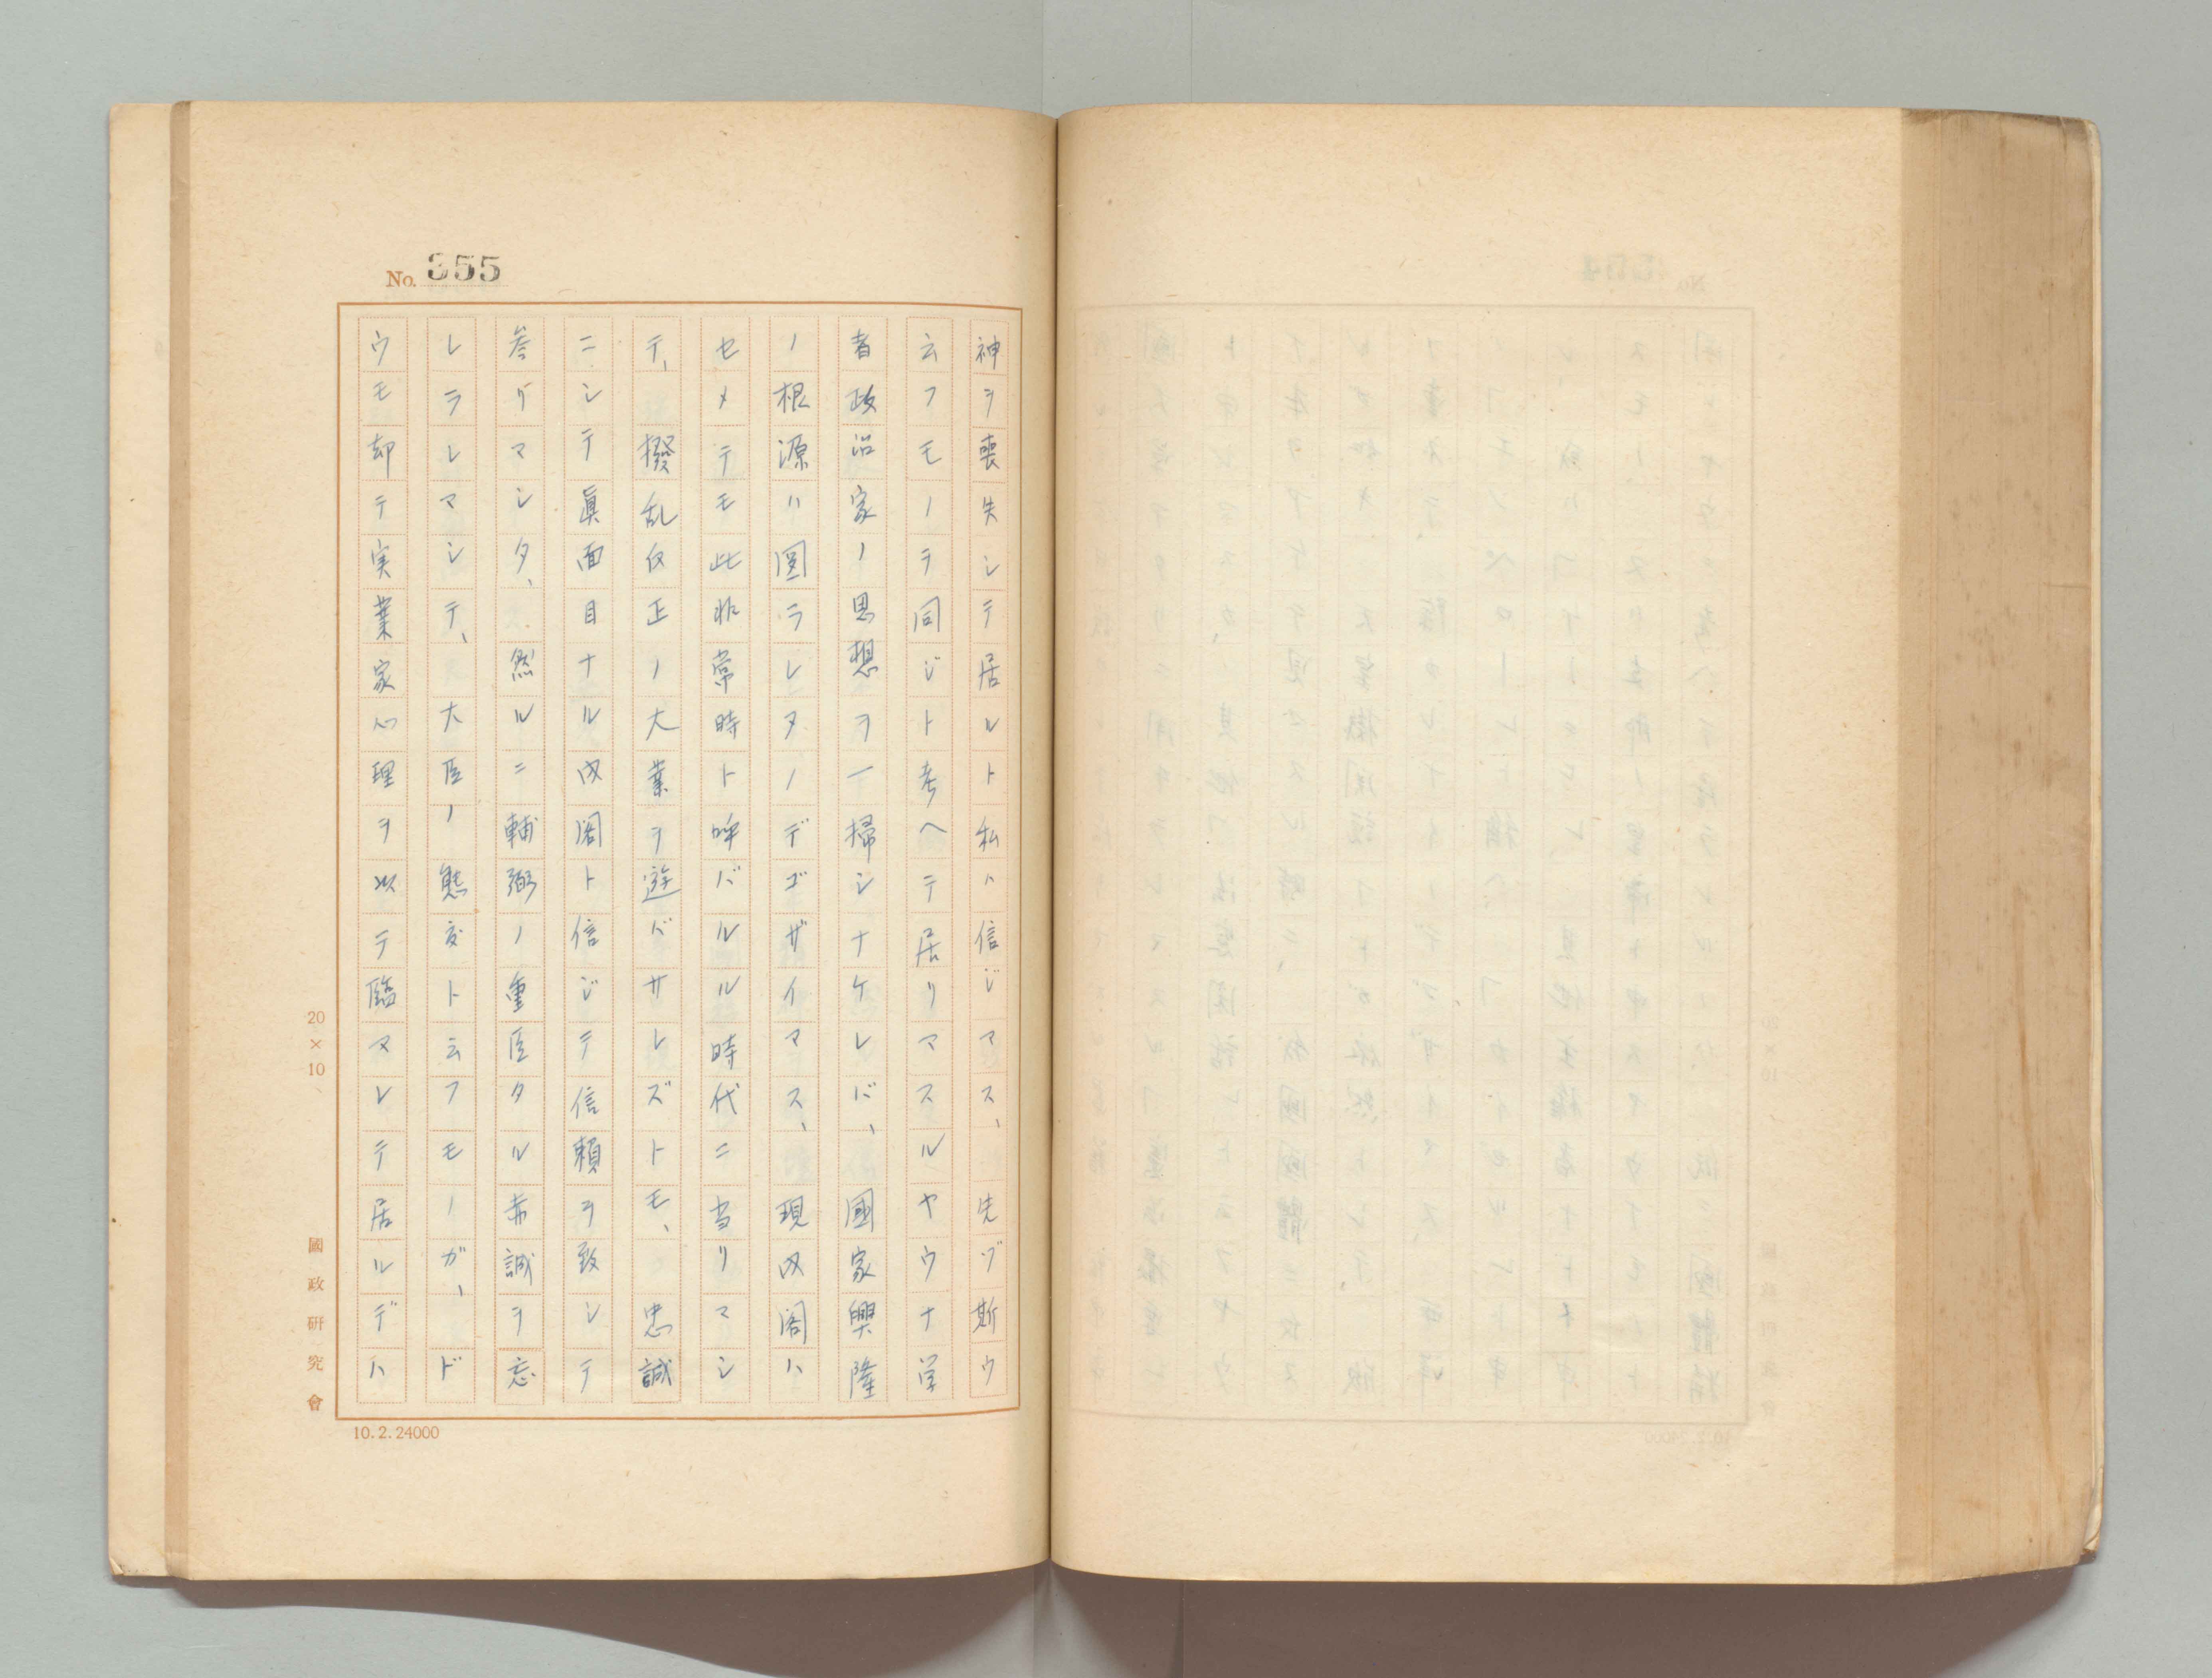 No. 355
神ヲ喪失シテ居ルト私ハ信ジマス、先ヅ斯ウ
云フモノヲ同ジト考ヘテ居リマスルヤウナ学
者政治家ノ思想ヲ一掃シナケレバ、國家興隆
ノ根源ハ圖ラレヌノデゴザイマス、現内閣ハ
セメテモ此非常時ト呼バルル時代ニ当リマシ
テ、撥乱反正ノ大業ヲ遊バサレズトモ、忠誠
ニシテ眞面目ナル内閣ト信ジテ信頼ヲ致シテ
参リマシタ、然ルニ輔弼ノ重臣タル赤誠ヲ忘
レラレマシテ、大臣ノ態度ト云フモノガ、ド
ウモ却テ実業家心理ヲ以テ臨マレテ居ルデハ
20×10
國政研究會
10.2.24000